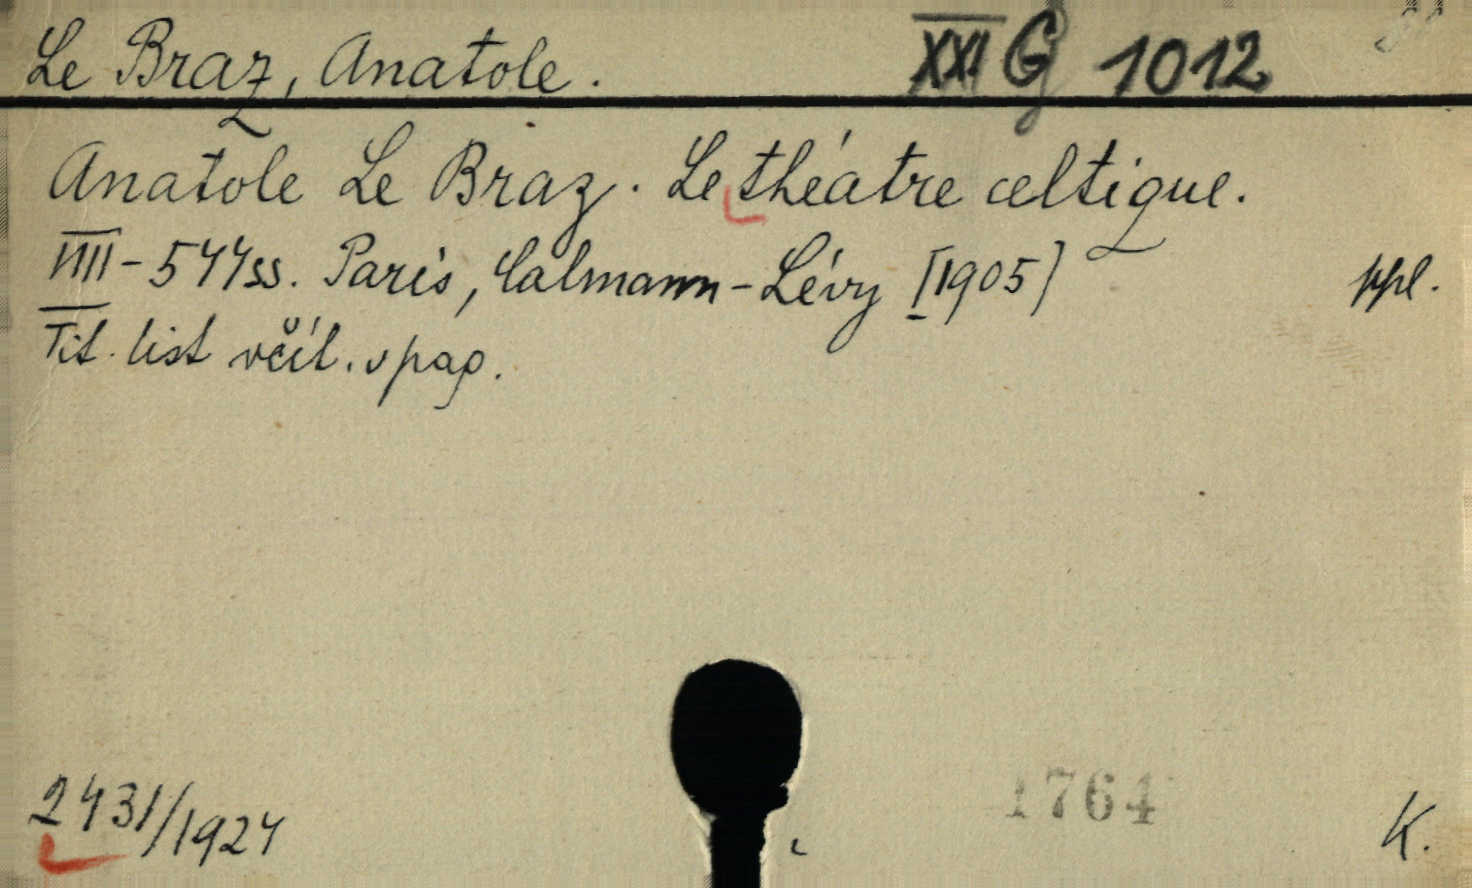 Le Braz, Anatole. XXI G 1012
Anatole Le Braz. Le théatre celtique.
VIII-544ss. Paris, Calmann-Lévy [1905] ppl.
Tit. list včít. v pag.
2431/1924
1764
K.